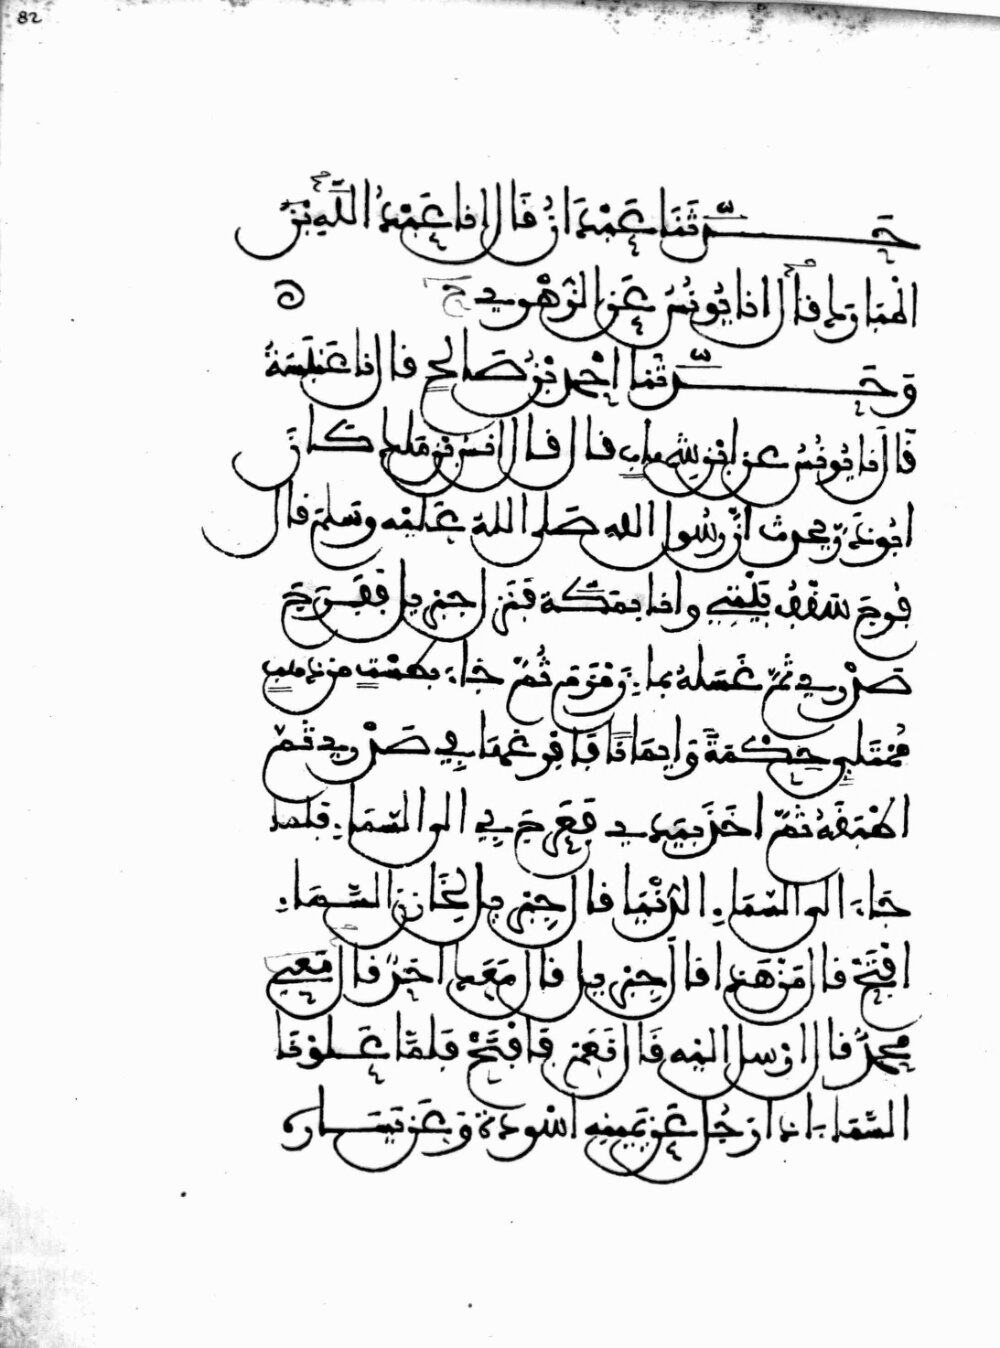 82
حَدَّثَنَا عَبْدَانُ قَالَ انا عَبْدُ اللَّهِ بْنُ
الْمُبَارَك قَالَ انا يُونُسُ عَنِ الزُّهْرِي ح
وَحَدَّثَنَا احْمَدُ بْنُ صَالِحٍ قال انا عَنْبَسَةُ
قَالَ انا يُونُسُ عن ابْنِ شِهَاب قال قال انسُ بْنُ مَلِك كَانَ
ابُو ذَرٍّ يحدث انَّ رَسُولَ اللهِ صَلى اللهُ عَلَيْهِ وَسَلم قال
فُرِجَ سَقْفُ بَيْتِي وانا بِمَكَّةَ فَنَزل جبْرِيل فَفَرَجَ
صَدْرِي ثُمَّ غَسَلَهُ بماءِ زَمْزَمَ ثُمَّ جَاءَ بطَسْت من ذهب
مُمْتَلِئٍ حِكْمَةً وَايمَانًا فَافْرَغَهَا فِي صَدْرِي ثُمَّ
اطْبَقَهُ ثُمَّ اخَذَ بِيَدِي فَعَرَجَ بِي الى السَّمَاءِ فَلمَّا
جَاءَ الى السَّمَاءِ الدُّنْيَا قال جِبْرِيل لِخَازِنِ السَّمَاءِ
افْتَحْ قال مَنْ هَذا قالَ جِبْرِيل قالَ مَعَكَ احَدٌ قالَ مَعِي
مُحَمَّدٌ قال ارْسِل اليْهِ قَالَ نَعَمْ فَافْتَحْ فَلمَّا عَلَوْنَا
السَّمَاءَ اذَا رَجُل عَنْ يَمِينِهِ اسْوِدَةٌ وَعَنْ يَسَارِهِ